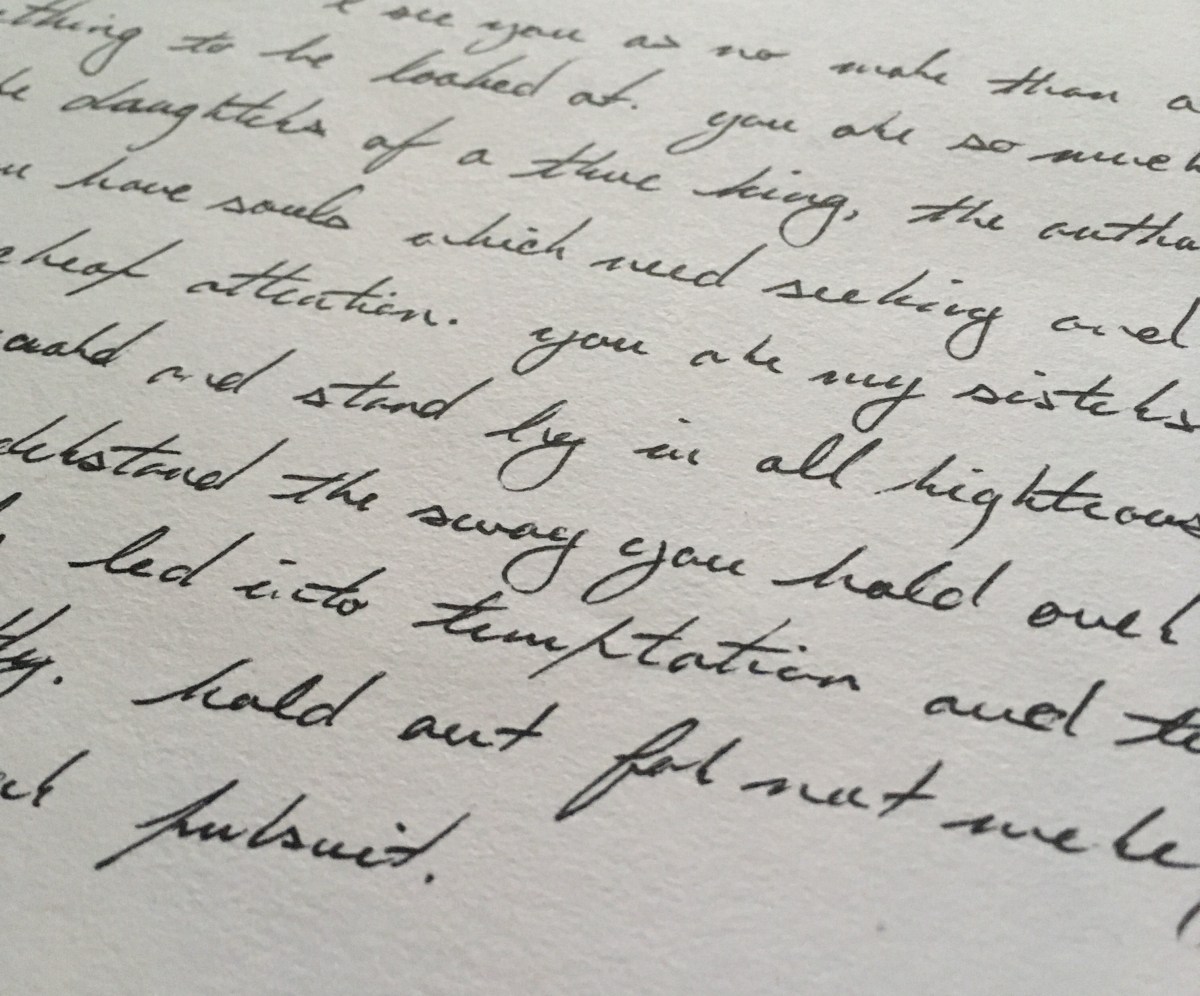 I see you as no more than a
thing to be looked at. you are so much
daughters of a true king, the autho
have souls which need seeking and
cheap attention. you are my sisters
guard and stand by in all righteous
derstand the sway you hold over
led into temptation and te
ty. hold out for not mere
pursuit.